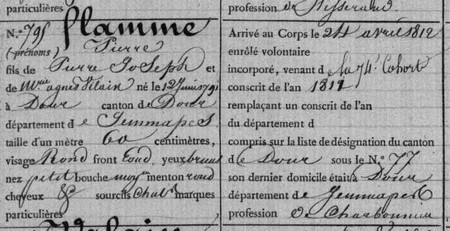 particulières
profession de Tisserand
N.° 795 Flamme
(prénoms) Pierre
fils de Pierre Joseph et
de Mie agnès Vilain né le 12 Juin 1791
à Dour canton de Dour
département de Jemmapes
taille d'un mètre 60 centimètres,
visage Rond front Rond, yeux bruns
nez petit bouche moye menton rond
cheveux & sourcils Chats marques
particulières
Arrivé au Corps le 24 avril 1812
enrôlé volontaire
incorporé, venant de la 74e Cohort
conscrit de l'an 1811
remplaçant un conscrit de l'an
du département d
compris sur la liste de désignation du canton
de Dour sous le N.° 77
son dernier domicile était à Dour
département de Jemmapes
profession de Charbonnier